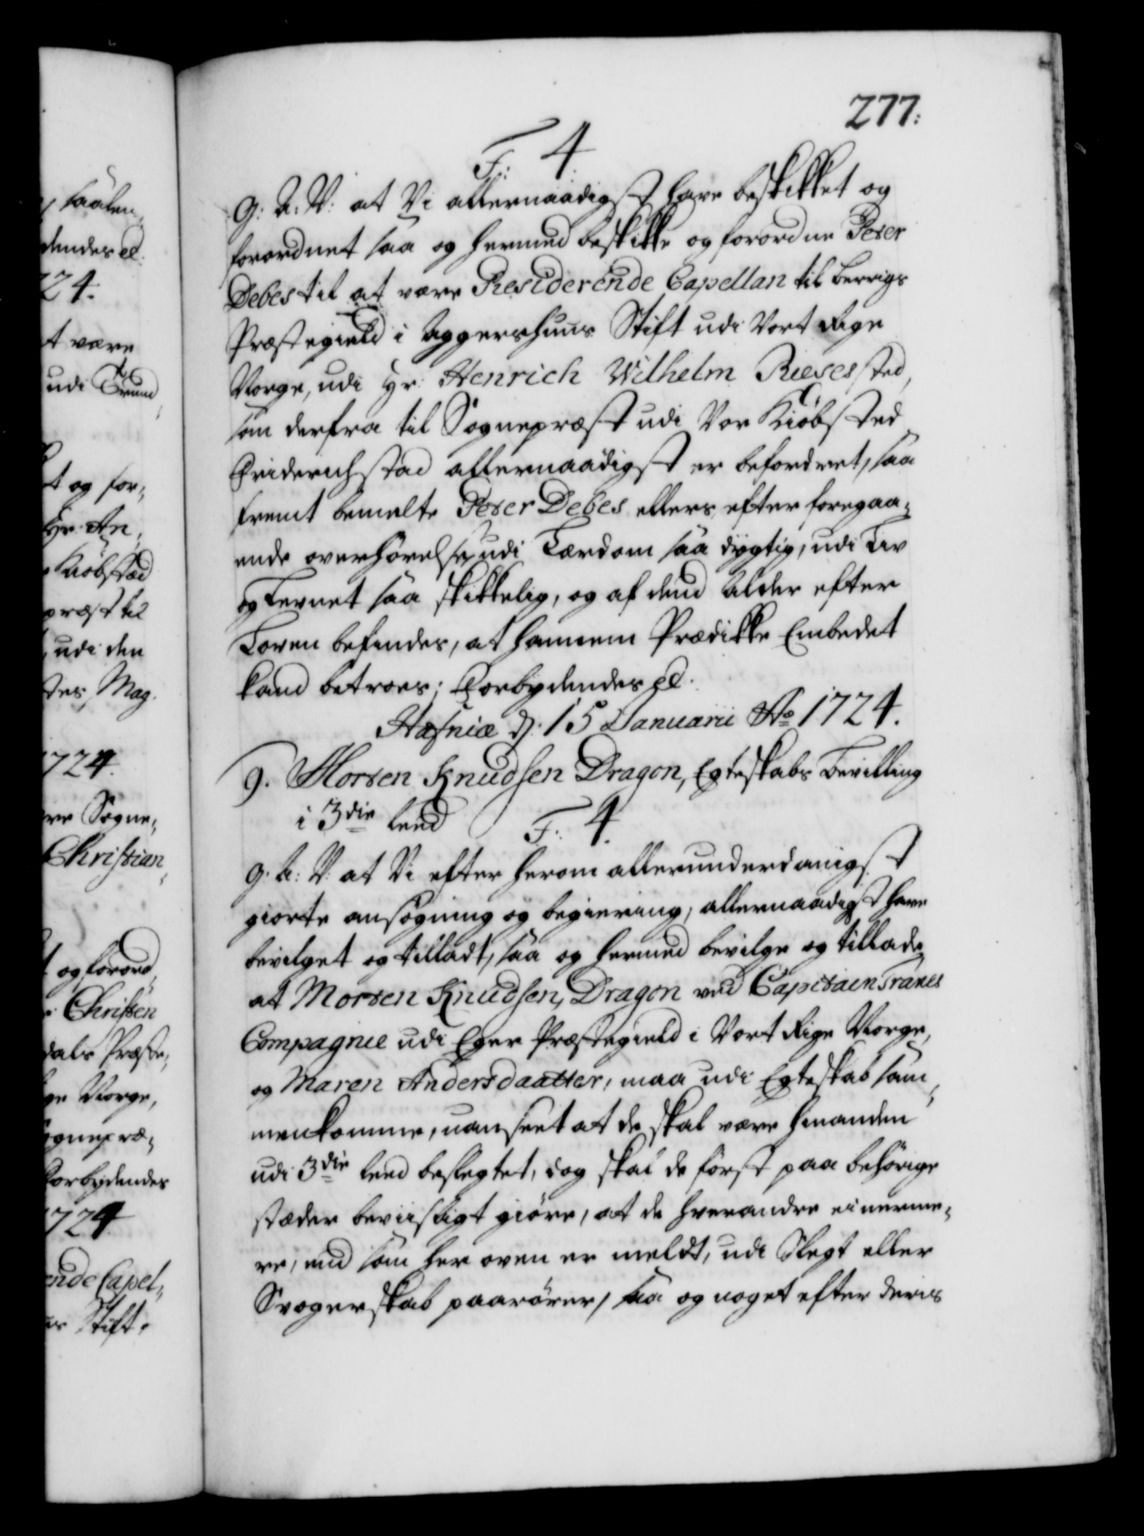 277:
F: 4.
G: A: V: at Vi allernaadigst have beskikket og
forordnet saa og hermed beskikke og forordne Peter
Debes til at være Residerende Capellan til Berrigs
Præstegield i Aggershuus Stift udi Vort Rige
Norge, udi Hr: Henrich Wilhelm Rieses sted,
som derfra til Sognepræst udi Vor Kiøbsted
Friderichstad allernaadigst er befordret, saa
fremt bemelte Peter Debes ellers efter foregaa-
ende overhørelse, udi Lærdom saa dygtig, udi Liv
og Levnet saa skikkelig, og af dend Alder efter
Loven befindes, at hannem Prædikke Embedet
kand betroes; Forbydendes etc.
Hafniæ d. 15 Januarii Ao 1724.
9. Morten Knudsen Dragon, Egteskabs Bevilling
i 3die Leed F: 4.
G. A: V: at Vi efter herom allerunderdanigst
giorte ansøgning og begiering, allernaadigst have
bevilget og tilladt, saa og hermed bevilge og tillade
at Morten Knudsen, Dragon ved Capitain Tranes
Compagnie udi Eger Præstegield i Vort Rige Norge,
og Maren Andersdaatter, maa udi Egteskab sam-
menkomme, uanseet at de skal være hinanden
udi 3die Leed beslegtet, dog skal de først paa behørige
stæder beviisligt giøre, at de hverandre ei nerme-
re, end som her oven er meldt, udi Slegt eller
Svogerskab paarører, saa og noget efter deris
saalen
dendes etc.
724.
t være
udi Trund
t og for-
Hr: An-
Kiøbstæd
præst til
udi den
Mag.
1724.
re Sogne-
Christian
og forord
Christen
dals Præste-
ge Norge,
ognepræ-
Forbydendes
1724
ende Capel-
Stift.